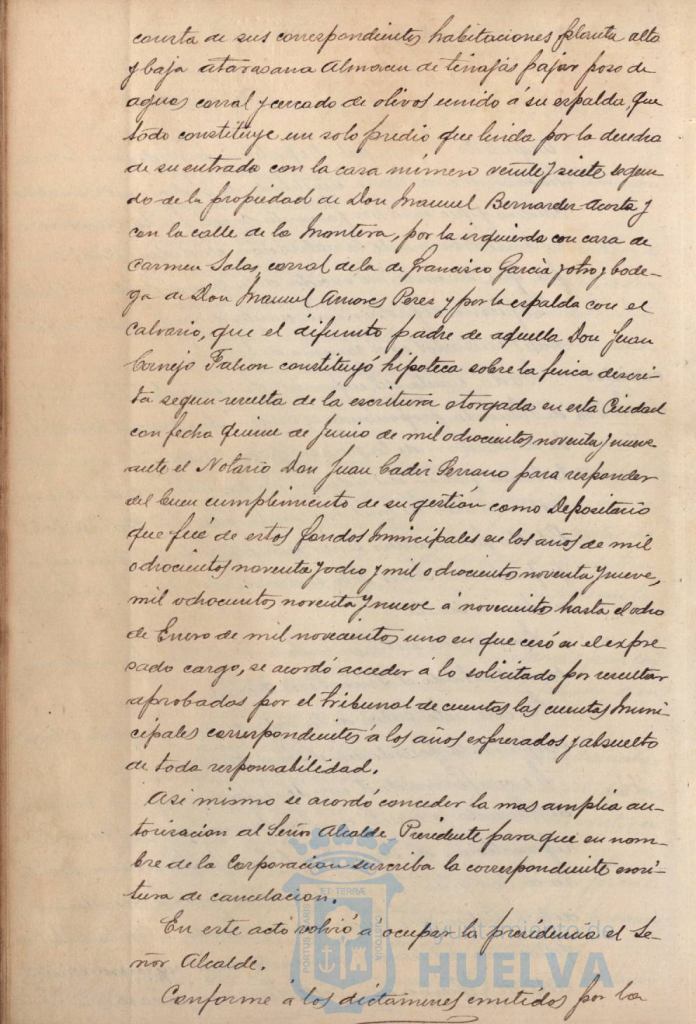 consta de sus correspondientes habitaciones planta alta
y baja atarasana Almacen de tinajas pajar poso de
aguas corral y cercado de olivos unido á su espalda, que
todo constituye un solo predio que linda por la derecha
de su entrada con la casa número veinte y siete segun-
do de la propiedad de Don Manuel Bernarder Acosta y
con la calle de la Montera, por la izquierda con casa de
Carmen Salas, corral de la de Francisco Garcia y otro y bode-
ga de Don Manuel Amores Peres y por la espalda con el
Calvario, que el difunto padre de aquella Don Juan
Cornejo constituyó hipoteca sobre la finca descri-
ta segun resulta de la escritura otorgada en esta Ciudad
con fecha quince de Junio de mil ochocientos noventa y nueve
ante el Notario Don Juan Cadir Serrano para responder
del buen cumplimiento de su gestión como Depositario
que fué de estos fondos Municipales en los años de mil
ochocientos noventa y ocho y mil ochocientos noventa y nueve,
mil ochocientos noventa y nueve á novecientos hasta el ocho
de Enero de mil novecientos uno en que cesó en el expre-
sado cargo, se acordó acceder á lo solicitado por resultar
aprobadas por el Tribunal de cuentas las cuentas Muni-
cipales correspondientes á los años expresados y absuelto
de toda responsabilidad.
Asi mismo se acordó conceder la mas amplia au-
torisacion al Señor Alcalde Presidente para que en nom-
bre de la Corporacion suscriba la correspondiente escri-
tura de cancelacion.
En este acto volvió á ocupar la presidencia el Se-
ñor Alcalde.
Conforme á los dictamenes emitidos por la
PORTUS MARIS ET TERRÆ CUSTODIA
Ayuntamiento de
HUELVA